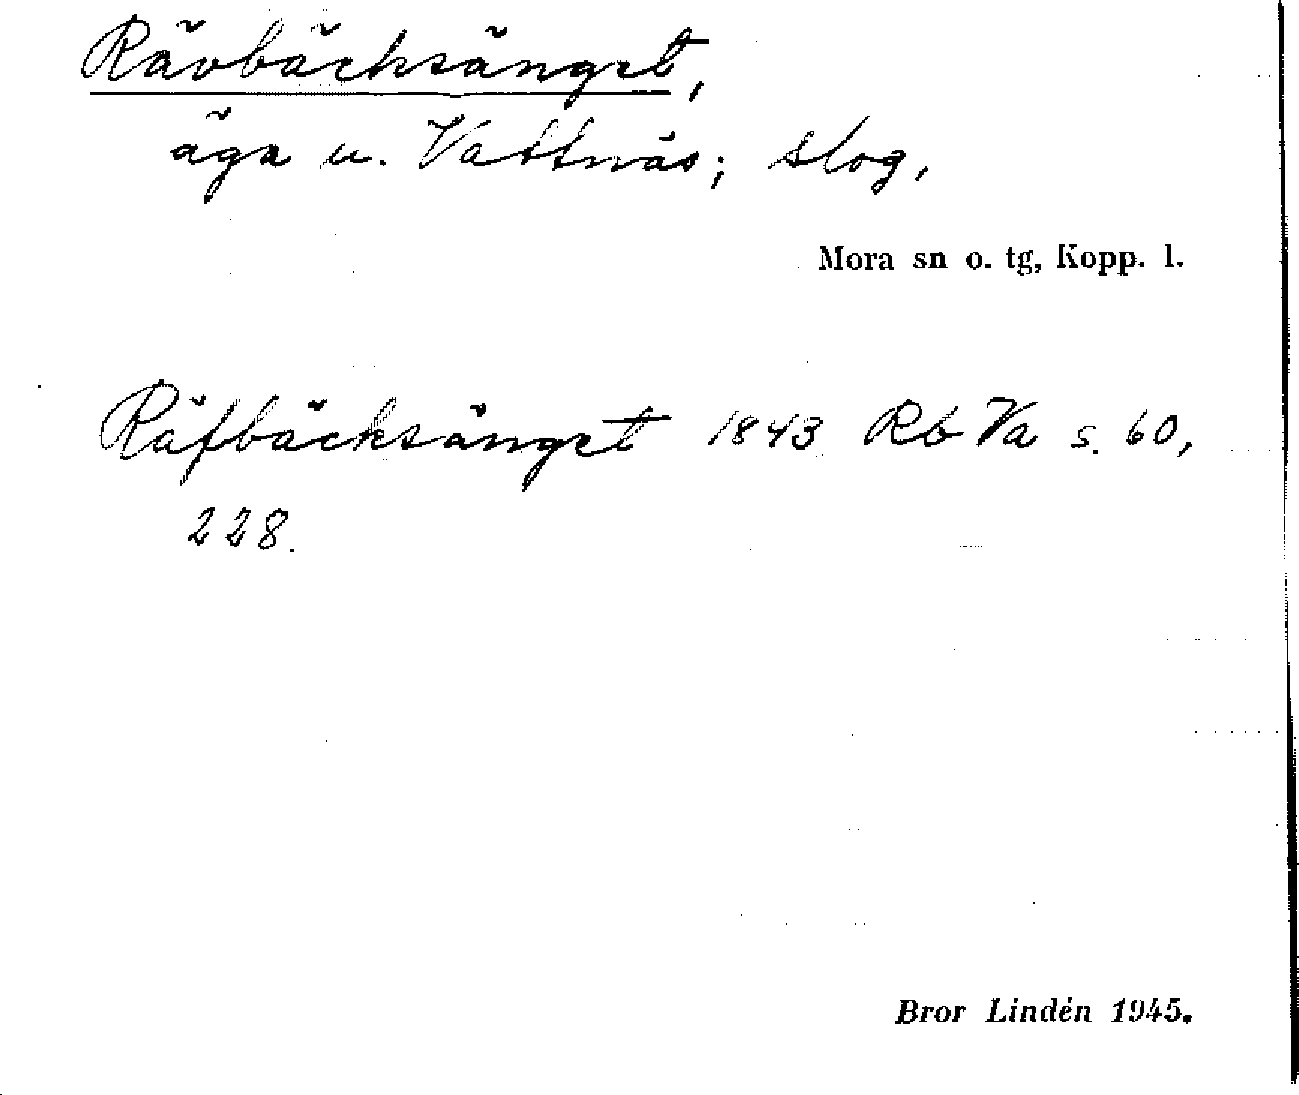 Rävbäcksänget,
äga u. Vattnäs; slog,
Mora sn o. tg, Kopp. l.
Räfbäcksänget 1843 Rb Va s. 60,
228.
Bror Lindén 1945.